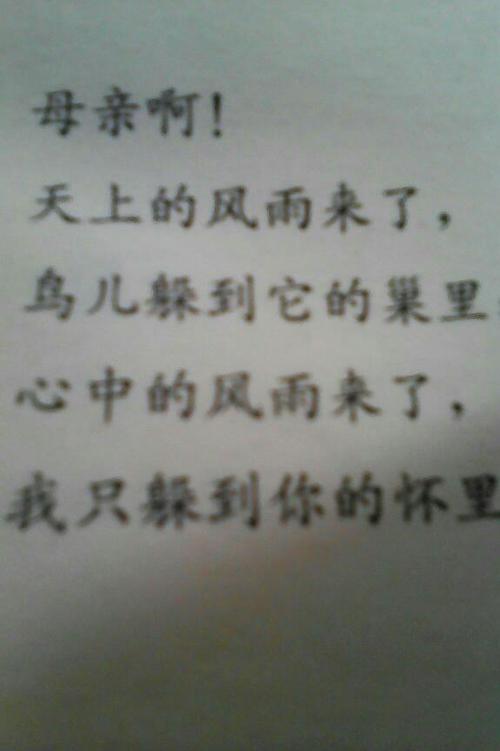 母亲啊!
天上的风雨来了,
鸟儿躲到它的巢里
心中的风雨来了,
我只躲到你的怀里